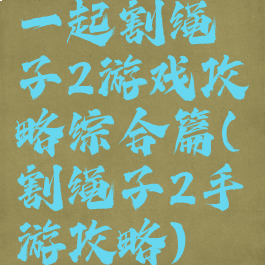 一起割绳
子2游戏攻
略综合篇(
割绳子2手
游攻略)